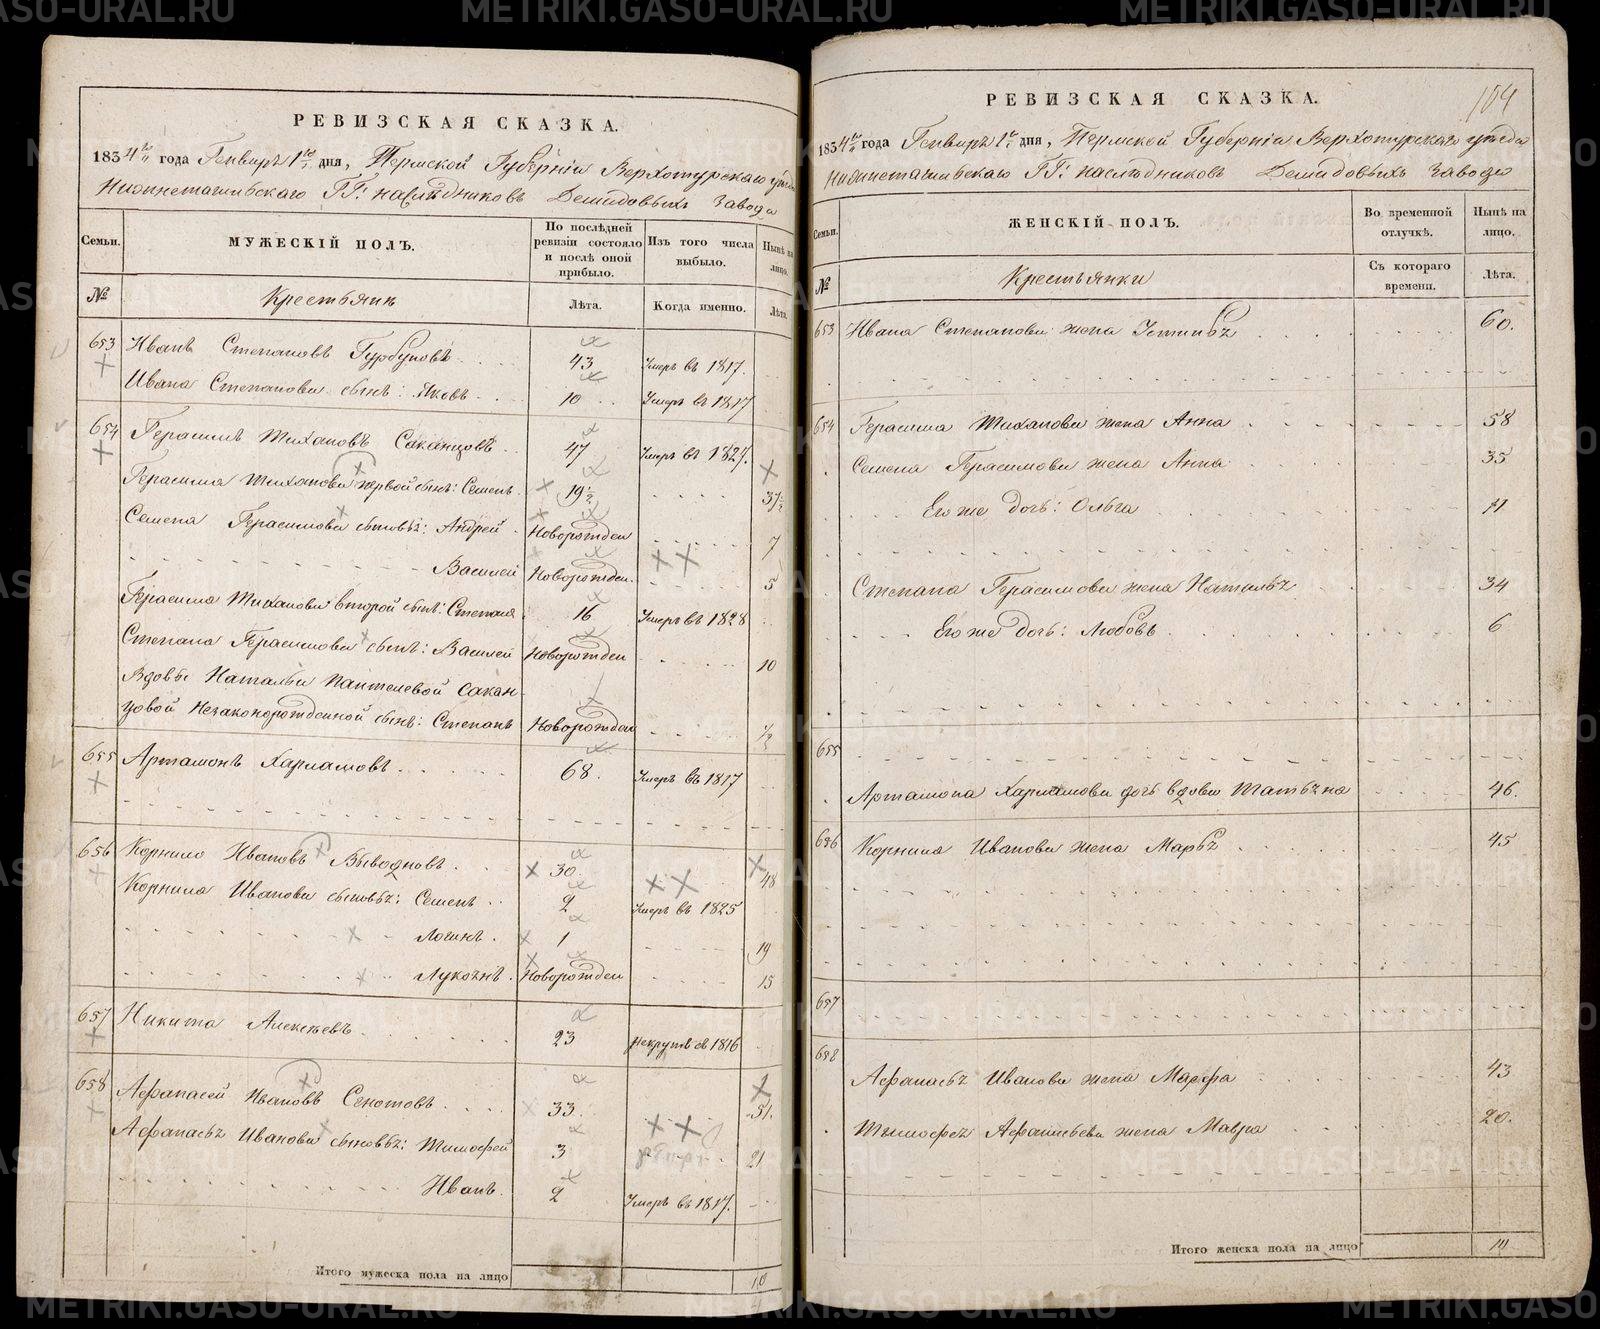 РЕВИЗСКАЯ СКАЗКА.
1834 года Генваря 1го дня, Пермской Губерніи Верхотурскаго уезда
Нижнетагильскаго ГГ: наследниковъ Демидовыхъ завода
Семьи. МУЖЕСКІЙ ПОЛЪ. По послѣдней ревизіи состояло и послѣ оной прибыло. Изъ того числа выбыло. Нынѣ на лицо.
№ Крестьянъ Лѣта. Когда именно. Лѣта.
653 Иванъ Степановъ 43 Умеръ въ 1817.
Ивана Степанова сынъ: Яковъ 10 Умеръ въ 1817
654 Герасимъ Сакенцовъ 47 Умеръ въ 1827.
Герасима первой сынъ: Семенъ 19½ 37½
Семена Герасимова сыновья: Андрей Новорожден 7
Василей Новорожден. 5
Герасима второй сынъ: Степанъ 16 Умеръ въ 1828
Степана Герасимова сынъ: Василей Новорожден 10
Вдовы Натальи Пантелевой Сакен-
цовой незаконорожденной сынъ: Степанъ Новорожден ½
655 Артамонъ Харламовъ 68. Умеръ въ 1817
656 Корнило Ивановъ 30. 48
Корнила Иванова сыновья: Семенъ 2 Умеръ въ 1825
Логинъ. 1 19
Лукоянъ. Новорожден 15
657 Никита Алексеевъ 23 рекрутъ въ 1816
658 Афанасей Ивановъ 33. 51.
Афанасья Иванова сыновья: Тимофей 3 21
Иванъ. 2 Умеръ въ 1817.
Итого мужеска пола на лицо 10
104
РЕВИЗСКАЯ СКАЗКА.
1834 года Генваря 1го дня, Пермской Губерніи Верхотурскаго уезда
Нижнетагильскаго ГГ: наследниковъ Демидовыхъ завода
Семьи. ЖЕНСКІЙ ПОЛЪ. Во временной отлучкѣ. Нынѣ на лицо.
№ Крестьянки Съ котораго времени. Лѣта.
653 Ивана Степанова жена Устинья 60.
654 Герасима жена Анна 58
Семена Герасимова жена Анна 35
Его же дочь: Ольга 11
Степана Герасимова жена Наталья 34
Его же дочь: Любовь 6
655
Артамона Харламова дочь вдова Татьяна 46.
656 Корнила Иванова жена Марья 45
657
658 Афанасья Иванова жена Марфа 43
Тимофея Афанасьева жена Мавра 20.
Итого женска пола на лицо 10
METRIKI.GASO-URAL.RU